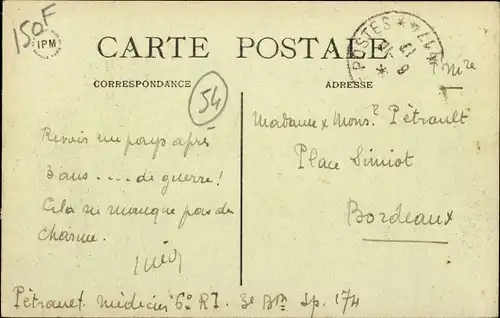 150F
IPM
CARTE POSTALE
CORRESPONDANCE
ADRESSE
POSTES
54
Revoir un pays après
3 ans .... de guerre!
Cela ne manque pas de
charme.
Madame & Monsr Pétrault
Place Simiot
Bordeaux
Médecin 6e RI. 3e Bn Sp. 174